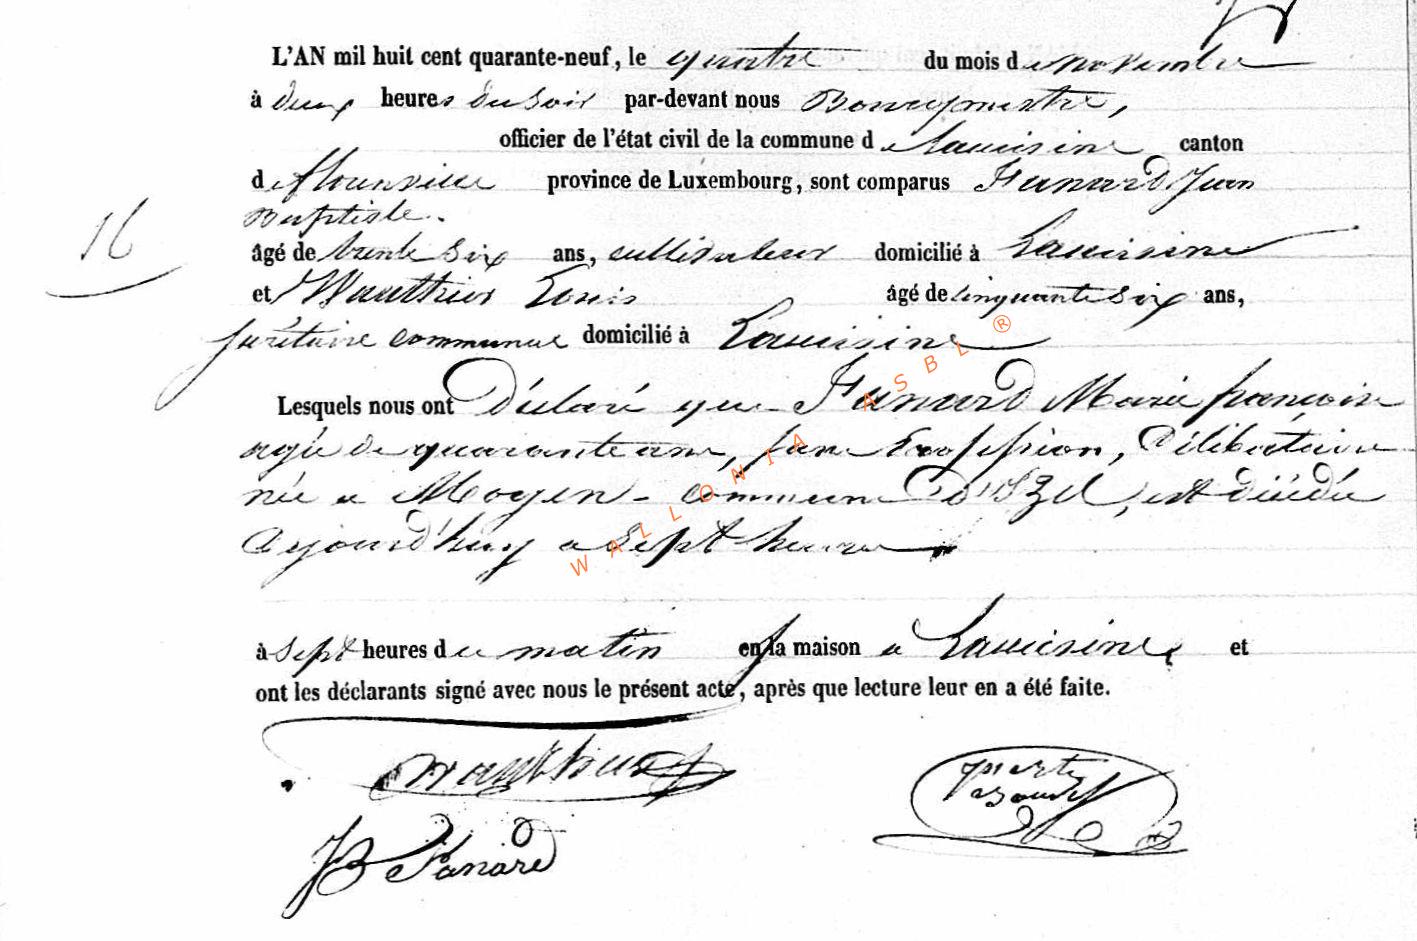 L'AN mil huit cent quarante-neuf, le quatre du mois de novembre
à deux heures du soir par-devant nous Bourgmestre,
officier de l'état civil de la commune de Lacuisine canton
de florenville province de Luxembourg, sont comparus Fanard Jean
Baptiste.
16
âgé de trente six ans, cultivateur domicilié à Lacuisine
et Wauthier Louis âgé de cinquante six ans,
secrétaire communal domicilié à Lacuisine
Lesquels nous ont Déclaré que Fanard Marie françoise
agée de quarante ans, sans proffession, Célibataire
née a Moyen commune D'Izel, est décédée
aujourd'huy a sept heures
à sept heures du matin en la maison a Lacuisine, et
ont les déclarants signé avec nous le présent acte, après que lecture leur en a été faite.
Wauthier
JB Fanard
WALLONIA ASBL ®